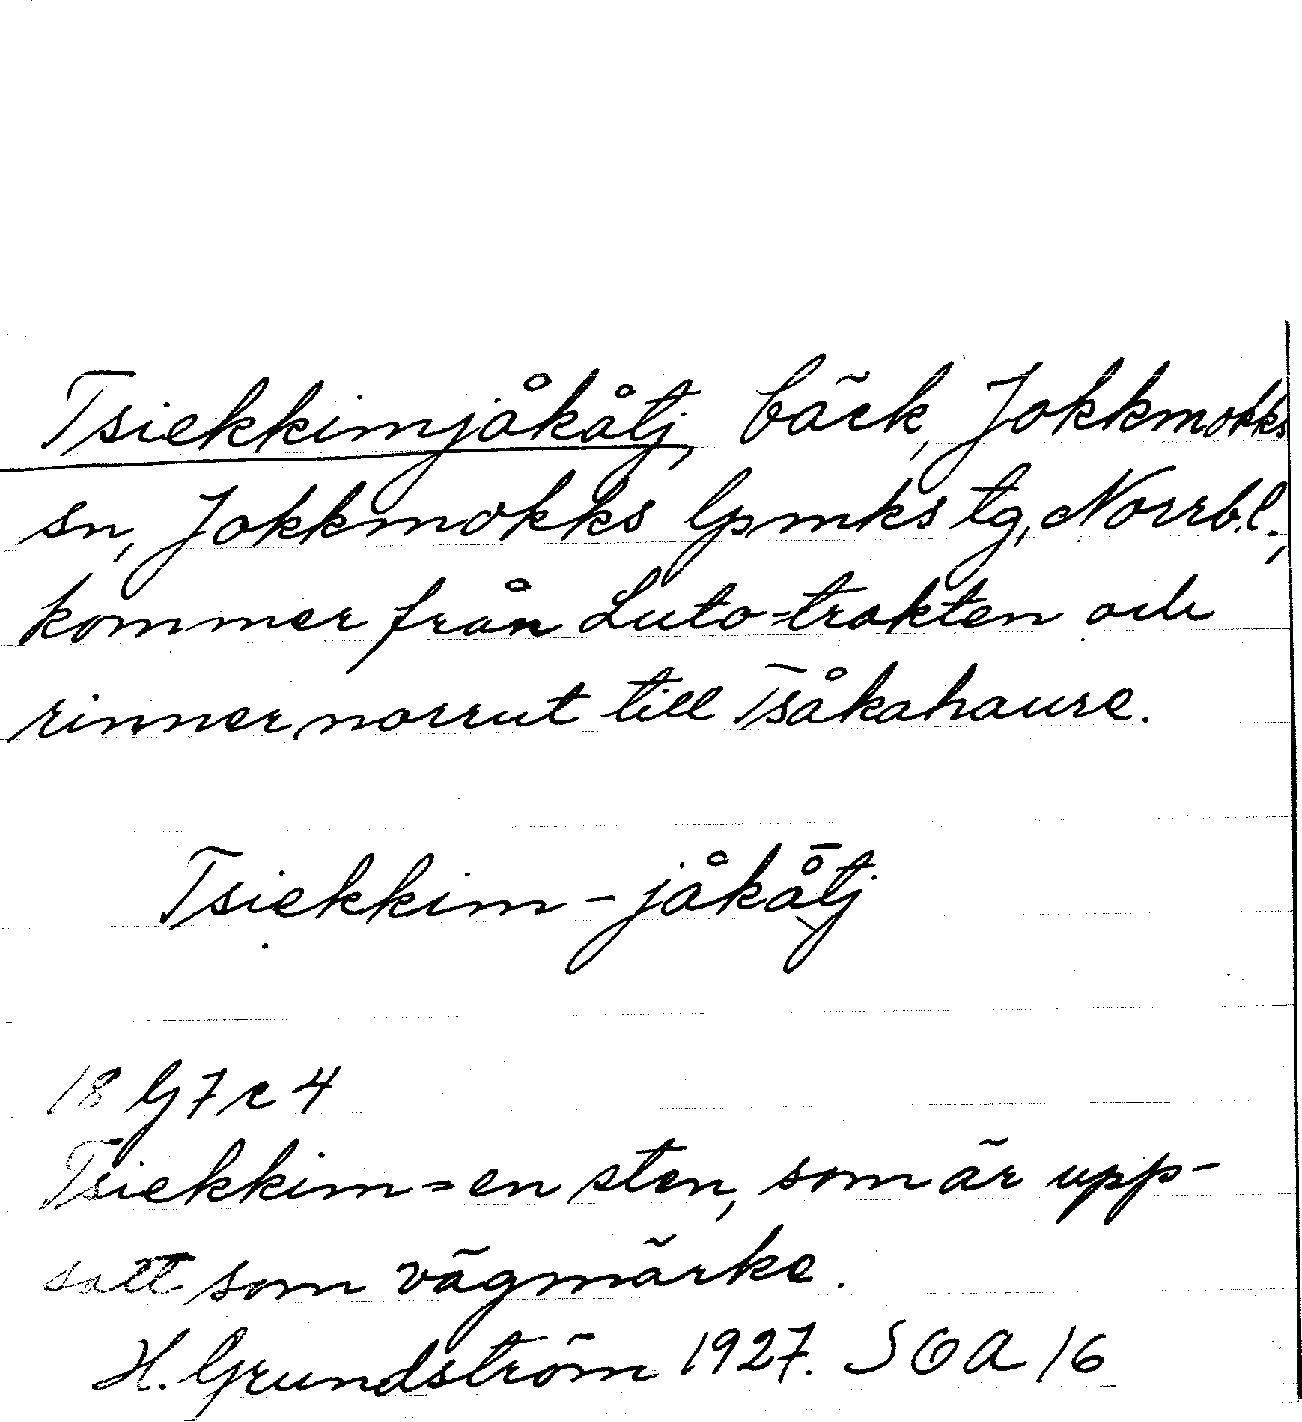 Tsiekkimjåkåtj, bäck, Jokkmokks
sn, Jokkmokks lpmks tg, Norrb.l.;
kommer från Luto-trakten och
rinner norrut till Tsåkahaure.
Tsiekkim-jåkå̄tj
18 G 7 c 4
Tsiekkim = en sten, som är upp-
satt som vägmärke.
H. Grundström 1927. SOA 16